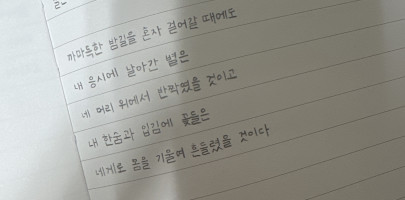 까마득한 밤길을 혼자 걸어갈 때에도
내 응시에 날아간 별은
네 머리 위에서 반짝였을 것이고
내 한숨과 입김에 꽃들은
네게로 몸을 기울여 흔들렸을 것이다